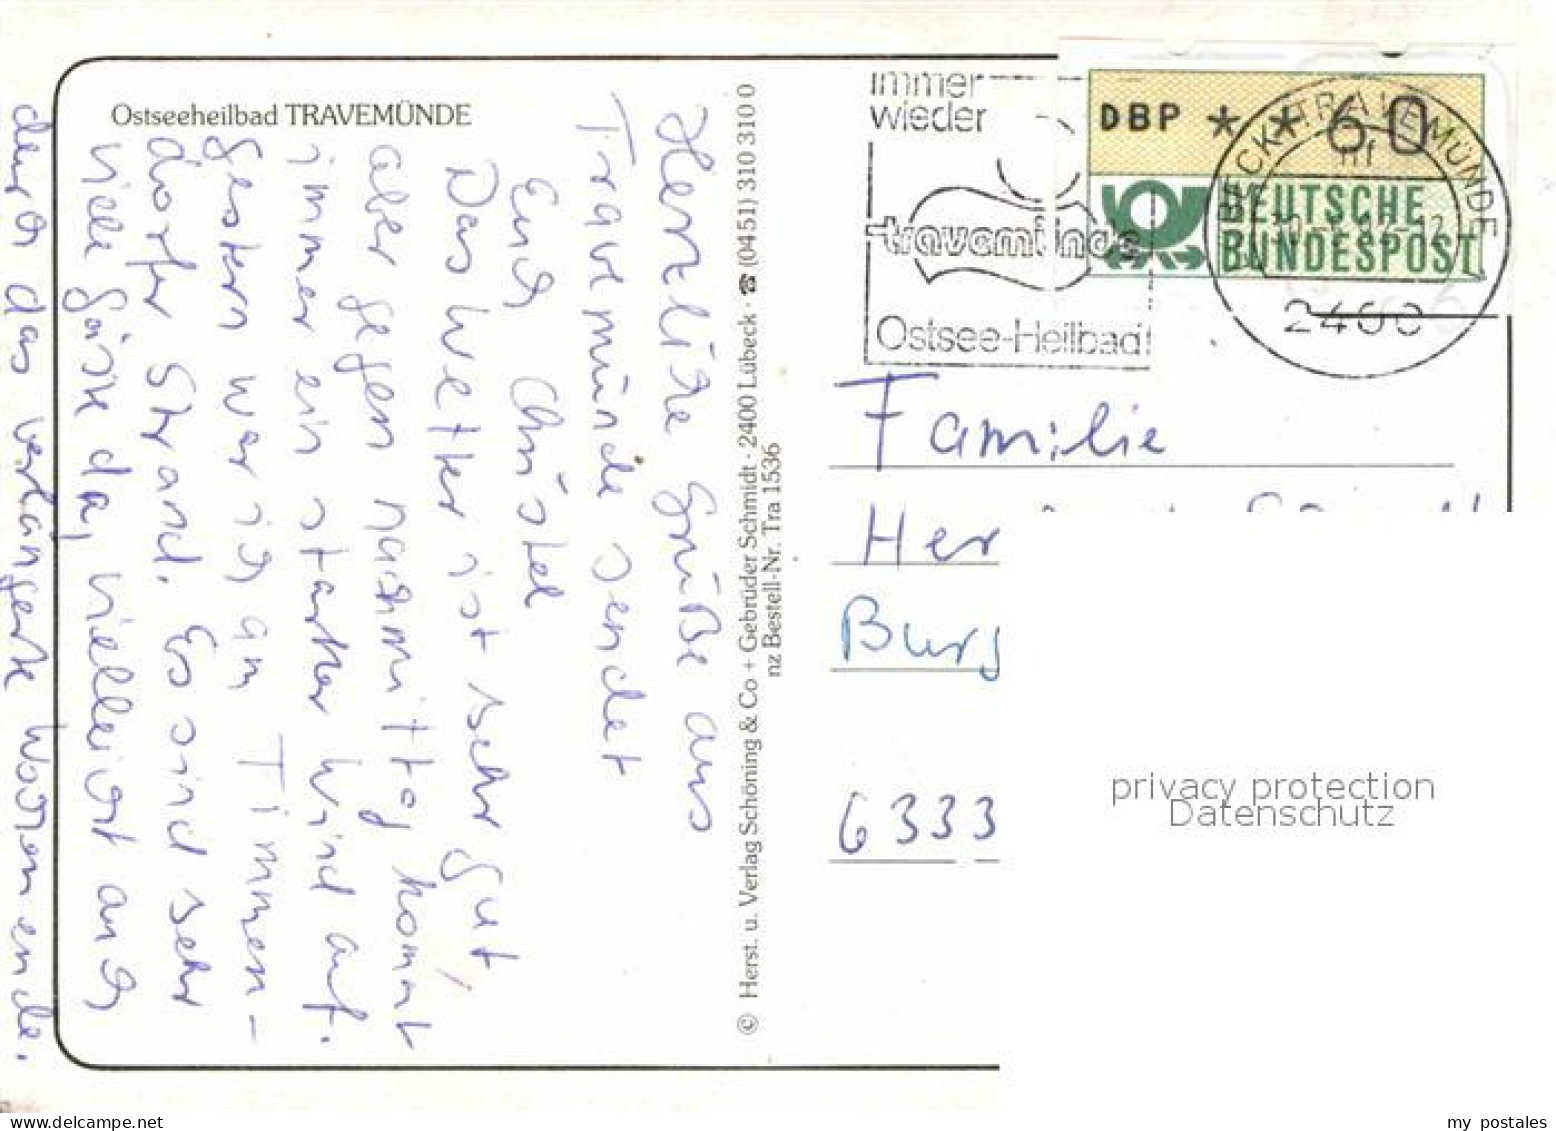 Ostseeheilbad TRAVEMÜNDE
Herzliche Grüße aus
Travemünde sendet
Euch Christel
Das Wetter ist sehr gut,
aber gegen nachmittag kommt
immer ein starker Wind auf.
Gestern war ich am Timmen-
dorfer Strand. Es sind sehr
viele Gäste da, vielleicht auch
durch das verlängerte Wochenende.
© Herst. u. Verlag Schöning & Co + Gebrüder Schmidt · 2400 Lübeck · ☎ (0451) 310 310 0
nz Bestell-Nr. Tra 1536
immer
wieder
travemünde
Ostsee-Heilbad
DBP * * 60
DEUTSCHE
BUNDESPOST
TRAVEMÜNDE
2400
Familie
Her
Burg
6333
privacy protection
Datenschutz
my postales